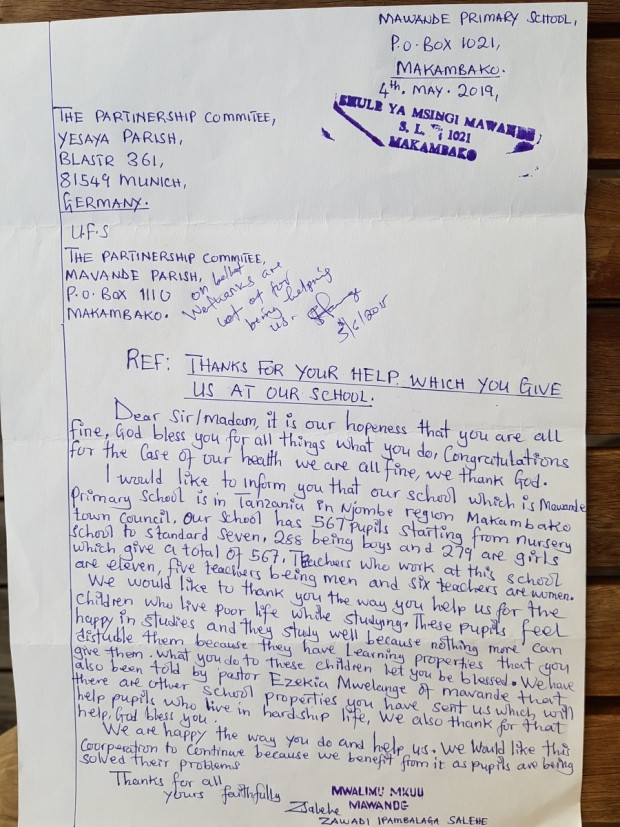 MAWANDE PRIMARY SCHOOL,
P.O. BOX 1021,
MAKAMBAKO.
4th. MAY. 2019,
SHULE YA MSINGI MAWANDE
S. L. 1021
MAKAMBAKO
THE PARTINERSHIP COMMITEE,
YESAYA PARISH,
BLASTR 361,
81549 MUNICH,
GERMANY.
U.F.S
THE PARTINERSHIP COMMITEE,
MAVANDE PARISH,
P.O. BOX 1110
MAKAMBAKO.
on behalf
We thanks are
lot of for
being helping
us.
REF: THANKS FOR YOUR HELP WHICH YOU GIVE
US AT OUR SCHOOL.
Dear Sir/Madam, it is our hopeness that you are all
fine, God bless you for all things what you do, Congratulations
for the case of our health we are all fine, we thank God.
I would like to inform you that our school which is Mawande
Primary School is in Tanzania in Njombe region Makambako
town council. Our school has 567 pupils starting from nursery
school to standard seven, 288 being boys and 279 are girls
which give a total of 567. Teachers who work at this school
are eleven, five teachers being men and six teachers are women.
We would like to thank you the way you help us for the
children who live poor life while studying. These pupils feel
happy in studies and they study well because nothing more can
distuble them because they have Learning properties that you
give them. What you do to these children let you be blessed. We have
also been told by pastor Ezekia Mwelange of mavande that
there are other school properties you have sent us which will
help pupils who live in hardship life, We also thank for that
help, God bless you.
We are happy the way you do and help us. We Would like this
Coorperation to continue because we benefit from it as pupils are being
solved their problems
Thanks for all
Yours faithfully
MWALIMU MKUU
MAWANDE
Zsalehe
ZAWADI IPAMBALAGA SALEHE